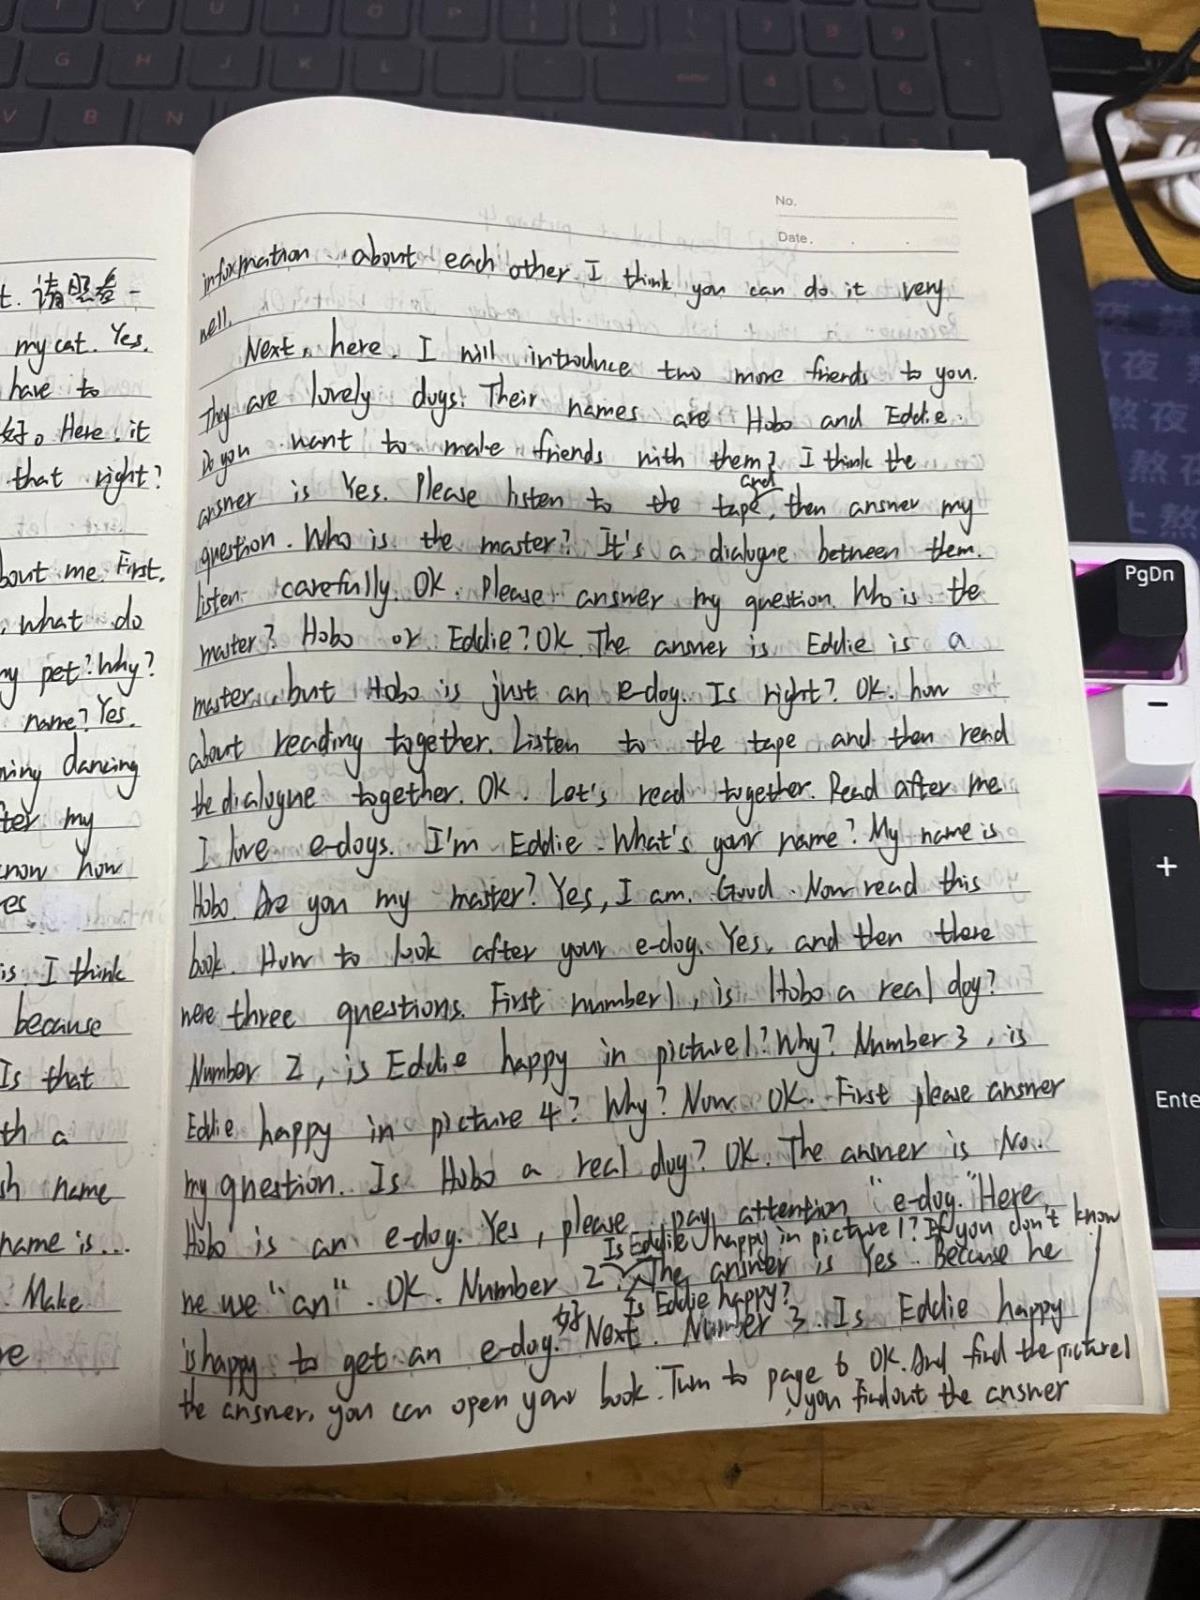 t. 请照着一
my cat. Yes.
have to
好。Here, it
that right?
bout me. First.
, what do
my pet? Why?
name? Yes.
dancing
ter my
know how
es
is. I think
because
Is that
th a
sh name
name is...
. Make
re
No.
Date.
information about each other. I think you can do it very
well.
Next, here. I will introduce two more friends to you.
They are lovely dogs. Their names are Hobo and Eddie.
Do you want to make friends with them? I think the
answer is Yes. Please listen to the tape, and then answer my
question. Who is the master? It's a dialogue between them.
listen carefully. OK. Please answer my question. Who is the
master? Hobo or Eddie? OK. The answer is Eddie is a
master, but Hobo is just an e-dog. Is right? OK. how
about reading together. Listen to the tape and then read
the dialogue together. OK. Let's read together. Read after me
I love e-dogs. I'm Eddie. What's your name? My name is
Hobo. Are you my master? Yes, I am. Good. Now read this
book. How to look after your e-dog. Yes, and then there
were three questions. First number 1, is Hobo a real dog?
Number 2, is Eddie happy in picture 1? Why? Number 3, is
Eddie happy in picture 4? Why? Now OK. First please answer
my question. Is Hobo a real dog? OK. The answer is No.
Hobo is an e-dog. Yes, please pay attention "e-dog." Here
Is Eddie happy in picture 1? If you don't know
we use "an". OK. Number 2. The answer is Yes. Because he
Is Eddie happy?
is happy to get an e-dog. 好 Next. Number 3. Is Eddie happy
the answer, you can open your book. Turn to page 6 OK. And find the picture 1
you find out the answer
PgDn
-
+
Ente